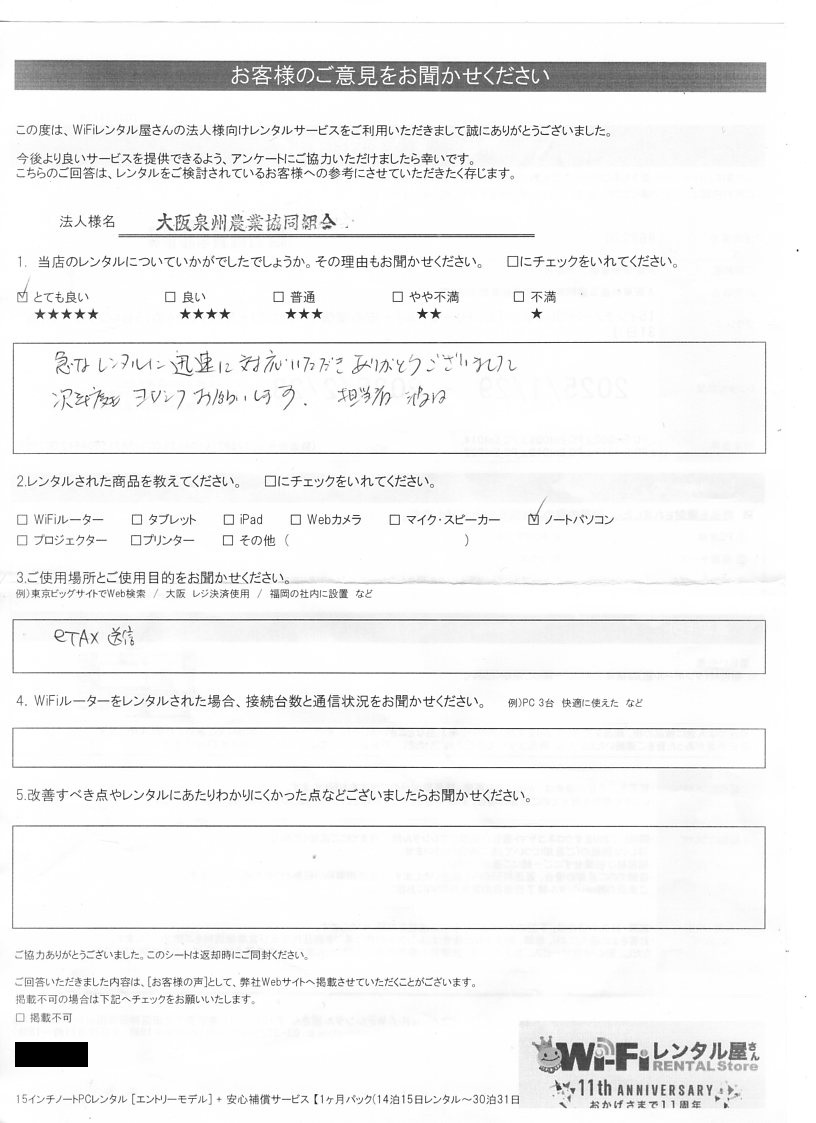 お客様のご意見をお聞かせください
この度は、WiFiレンタル屋さんの法人様向けレンタルサービスをご利用いただきまして誠にありがとうございました。
今後より良いサービスを提供できるよう、アンケートにご協力いただけましたら幸いです。
こちらのご回答は、レンタルをご検討されているお客様への参考にさせていただきたく存じます。
法人様名 大阪泉州農業協同組合
1. 当店のレンタルについていかがでしたでしょうか。その理由もお聞かせください。 □にチェックをいれてください。
☑ とても良い □ 良い □ 普通 □ やや不満 □ 不満
★★★★★ ★★★★ ★★★ ★★ ★
急なレンタルに迅速に対応いただきありがとうございました
お願いします. 担当者
2.レンタルされた商品を教えてください。 □にチェックをいれてください。
□ WiFiルーター □ タブレット □ iPad □ Webカメラ □ マイク・スピーカー ☑ ノートパソコン
□ プロジェクター □プリンター □ その他 ( )
3.ご使用場所とご使用目的をお聞かせください。
例)東京ビッグサイトでWeb検索 / 大阪 レジ決済使用 / 福岡の社内に設置 など
eTAX 送信
4. WiFiルーターをレンタルされた場合、接続台数と通信状況をお聞かせください。 例)PC 3台 快適に使えた など
5.改善すべき点やレンタルにあたりわかりにくかった点などございましたらお聞かせください。
ご協力ありがとうございました。このシートは返却時にご同封ください。
ご回答いただきました内容は、[お客様の声]として、弊社Webサイトへ掲載させていただくことがございます。
掲載不可の場合は下記へチェックをお願いいたします。
□ 掲載不可
Wi-Fiレンタル屋さん
RENTAL Store
11th ANNIVERSARY
おかげさまで11周年
15インチノートPCレンタル [エントリーモデル] + 安心補償サービス 【1ヶ月パック(14泊15日レンタル～30泊31日